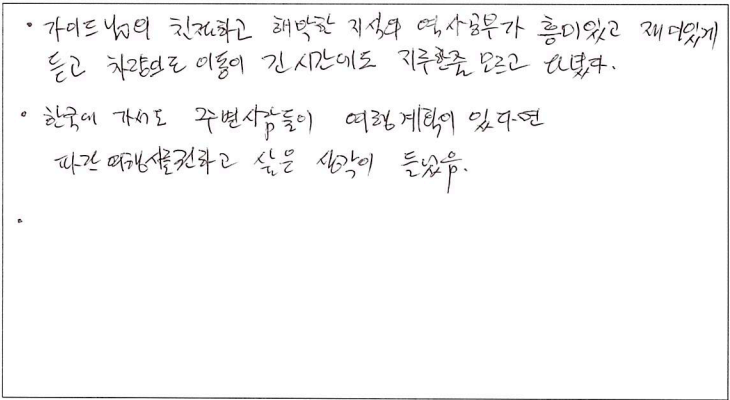 · 가이드님의 친절하고 해박한 지식와 역사공부가 흥미있고 재미있게
듣고 차량으로 이동이 긴 시간에도 지루한줄 모르고
· 한국에 가서도 주변사람들이 여행계획이 있다면
여행사를권하고 싶은 생각이 들었음.
·